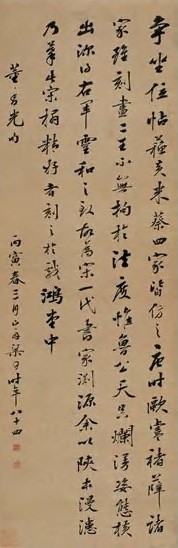 爭坐位帖蘇黃米蔡四家皆仿之唐時歐虞褚薛諸
家雖刻畫二王不無拘於法度惟魯公天真爛漫姿態橫
出深得右軍靈和之致故為宋一代書家淵源余以陝本漫漶
乃摹此宋搨精好者刻之於戲鴻堂中
董香光
丙寅春三月山舟梁同書時年八十四